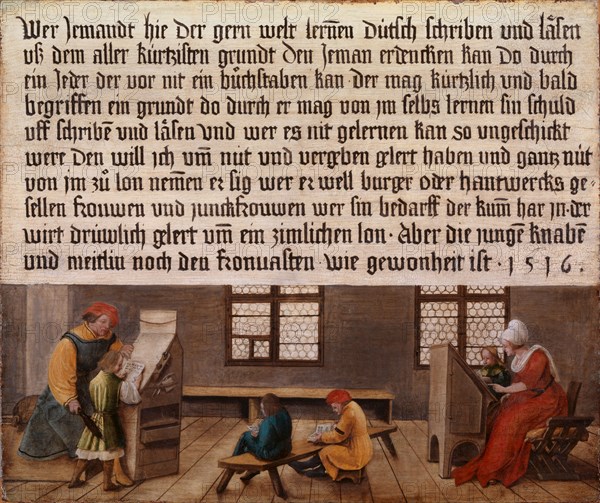 Wer Jemandt hie der gern welt lernen Dütsch schriben und läsen
uß dem aller kürtzisten grundt den Jeman erdencken kan Do durch
ein Jeder der vor nit ein büchstaben kan der mag kürtzlich und bald
begriffen ein grundt do durch er mag von jm selbs lernen sin schuld
uff schribē und läsen und wer es nit gelernen kan so ungeschickt
were Den will jch um̄ nüt und vergeben gelert haben und gantz nüt
von jm zů lon nemen er sig wer er well burger oder hantwercks ge-
sellen frouwen und junckfrouwen wer sin bedarff der kum̄ har jn · der
wirt drüwlich gelert um̄ ein zimlichen lon · Aber die jungē knabē
und meitlin noch den fronuasten · wie gewonheit ist · 1 5 1 6 ·